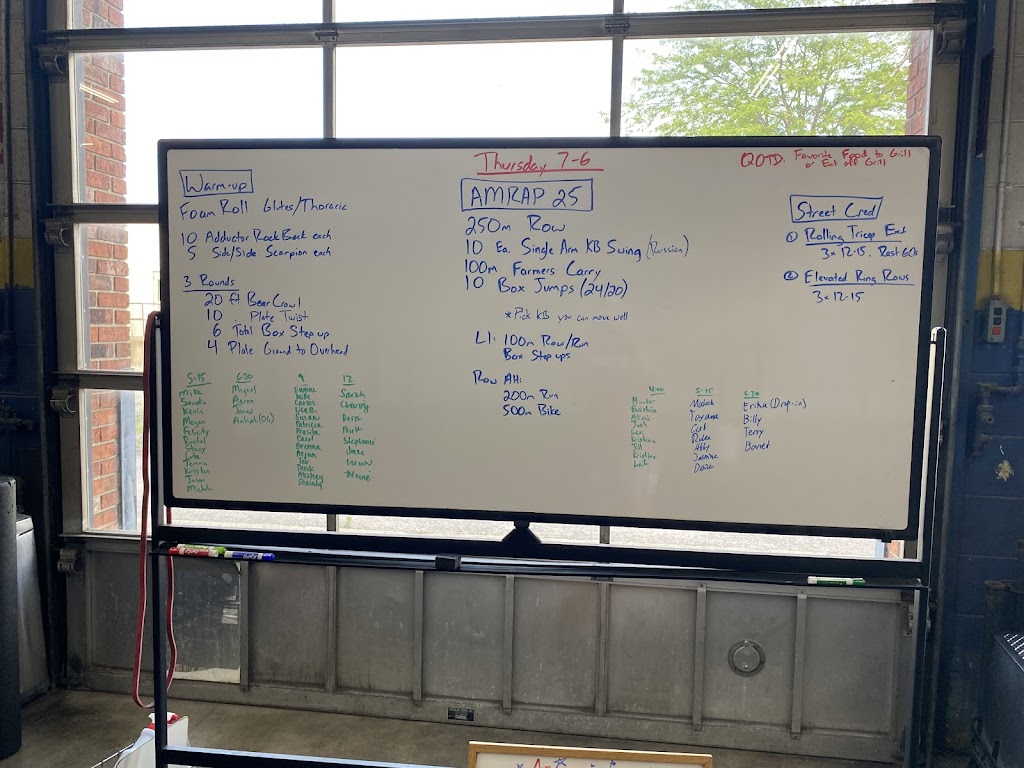 Thursday 7-6
QOTD: Favorite Food to Grill
or Eat off Grill
Warm-up
Foam Roll Glites/Thoracic
10 Adductor Rock Back each
5 Side/Side Scorpion each
3 Rounds
20 ft Bear Crawl
10 Plate Twist
6 Total Box Step up
4 Plate Ground to Overhead
AMRAP 25
250m Row
10 Ea. Single Arm KB Swing (Russian)
100m Farmers Carry
10 Box Jumps (24/20)
*Pick KB you can move well
L1: 100m Row/Run
Box Step ups
Row Alt:
200m Run
500m Bike
Street Cred
① Rolling Tricep Ext
3x12-15. Rest 60s
② Elevated Ring Rows
3x12-15
5:15
Mike
Sandra
Kevin
Megan
Felicity
Rachel
Stacy
Luke
Jenna
Kristen
Jason
Michele
6:30
Miguel
Aaron
Jonas
9
Mike
Lisa B.
Patricia
Carol
Brenna
Derek
12
Sarah
Matt
Stephanie
4:00
Josh
Kristina
Jill
Kristine
5:15
Abby
Jasmine
Dave
5:30
Erika (Drop-in)
Billy
Terry